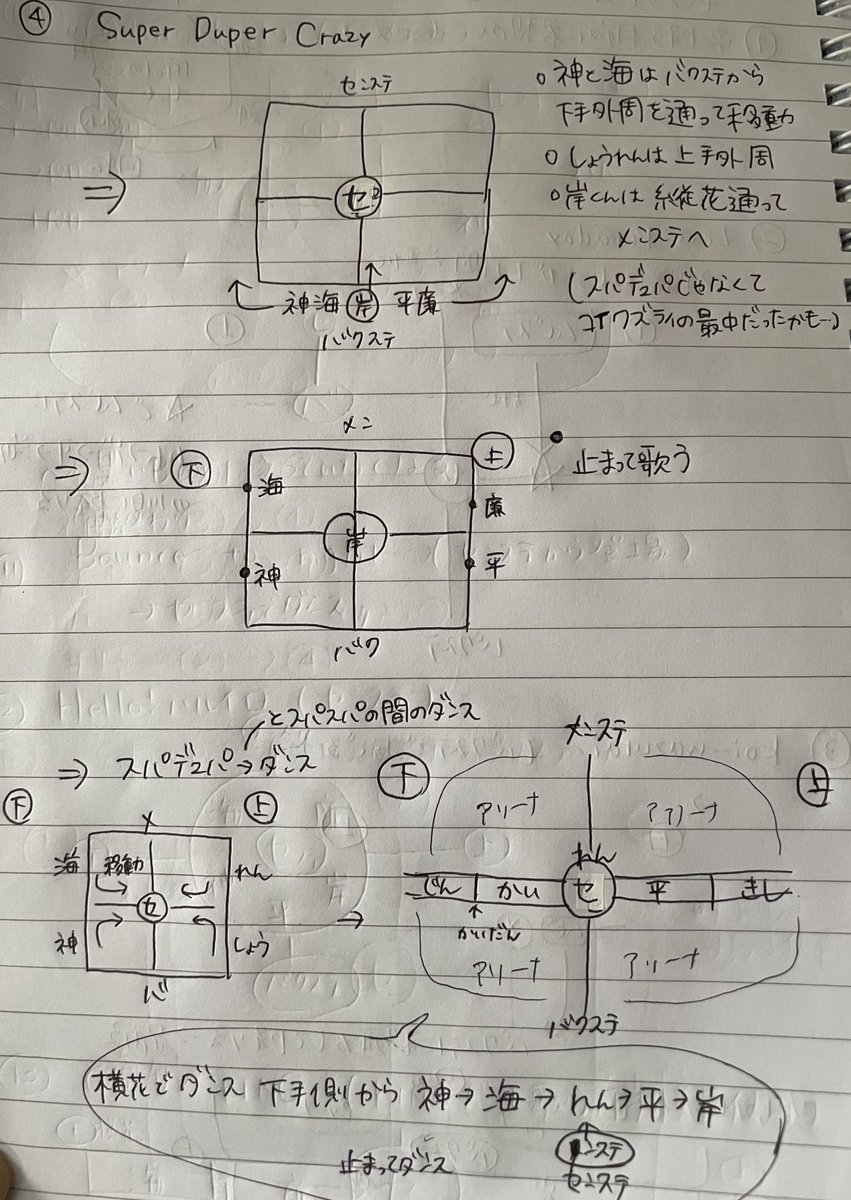 ④ Super Duper Crazy
センステ
⇒
セ
神海 岸 平廉
バクステ
○ 神と海はバクステから
下手外周を通って移動
○ しょうれんは上手外周
○ 岸くんは縦花通って
メンステへ
(スパデュパじゃなくて
コイワズライの最中だったかも…)
メン
⇒ 下 上
海 廉
岸
神 平
バク
• 止まって歌う
とスパスパの間のダンス
⇒ スパデュパ→ダンス
下 上
メ
海 移動 れん
セ
神 しょう
バ
→
メンステ
下 上
アリーナ アリーナ
れん
じん かい セ 平 きし
↑
かいだん
アリーナ アリーナ
バクステ
横花でダンス 下手側から 神→海→れん→平→岸
止まってダンス
センステ